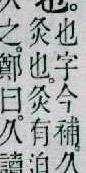 也字今補久
也灸也灸有迫
之鄭曰久讀